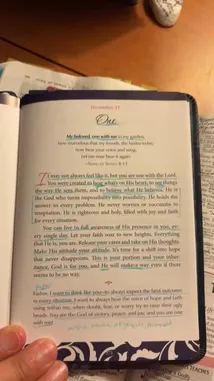 December 31
One
My beloved, one with me in my garden,
how marvelous that my friends, the brides-to-be,
now hear your voice and song.
Let me now hear it again.
I may not always feel like it, but you are one with the Lord.
You were created to hear what's on His heart, to see things
the way He sees them, and to believe what He believes. He is
the God who turns impossibility into possibility. He holds the
answer to every problem. He never worries or succumbs to
temptation. He is righteous and holy, filled with joy and faith
for every situation.
You can live in full awareness of His presence in you, ev-
ery single day. Let your faith soar to new heights. Everything
that He is, you are. Release your cares and take on His thoughts.
Make His attitude your attitude. It's time for a shift into hope
that never disappoints. This is your portion and your inher-
itance. God is for you, and He will make a way even if there
seems to be no way.
Father, I want to think like you—to always expect the best outcome
in every situation. I want to always hear the voice of hope and faith
rising within me, where doubt, fear, or worry try to raise their ugly
heads. You are the God of victory, peace, and joy, and you are one
with me!